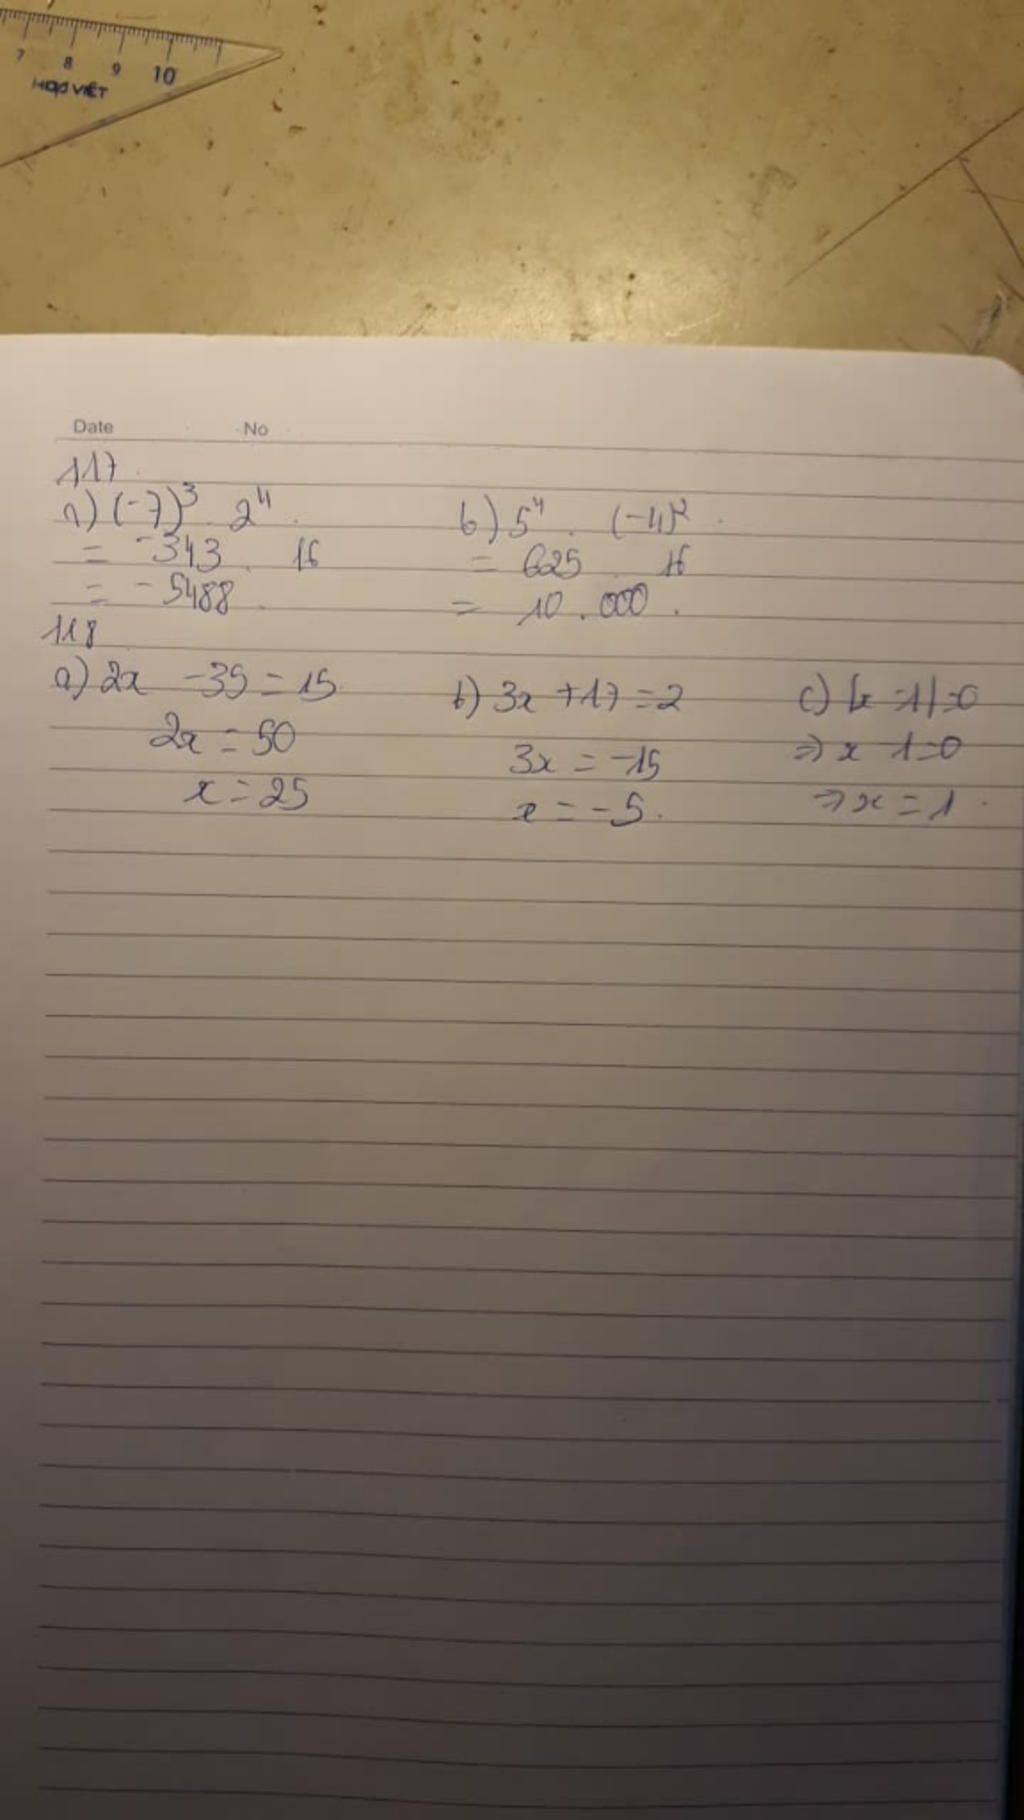 7 8 9 10
HỌC VIỆT
Date No
117
a) (-7)³ . 2⁴ b) 5⁴ . (-4)²
= -343 . 16 = 625 . 16
= -5488 . = 10.000 .
118
a) 2x - 35 = 15 b) 3x + 17 = 2 c) |x - 1| = 0
2x = 50 3x = -15 => x - 1 = 0
x = 25 x = -5 . => x = 1 .